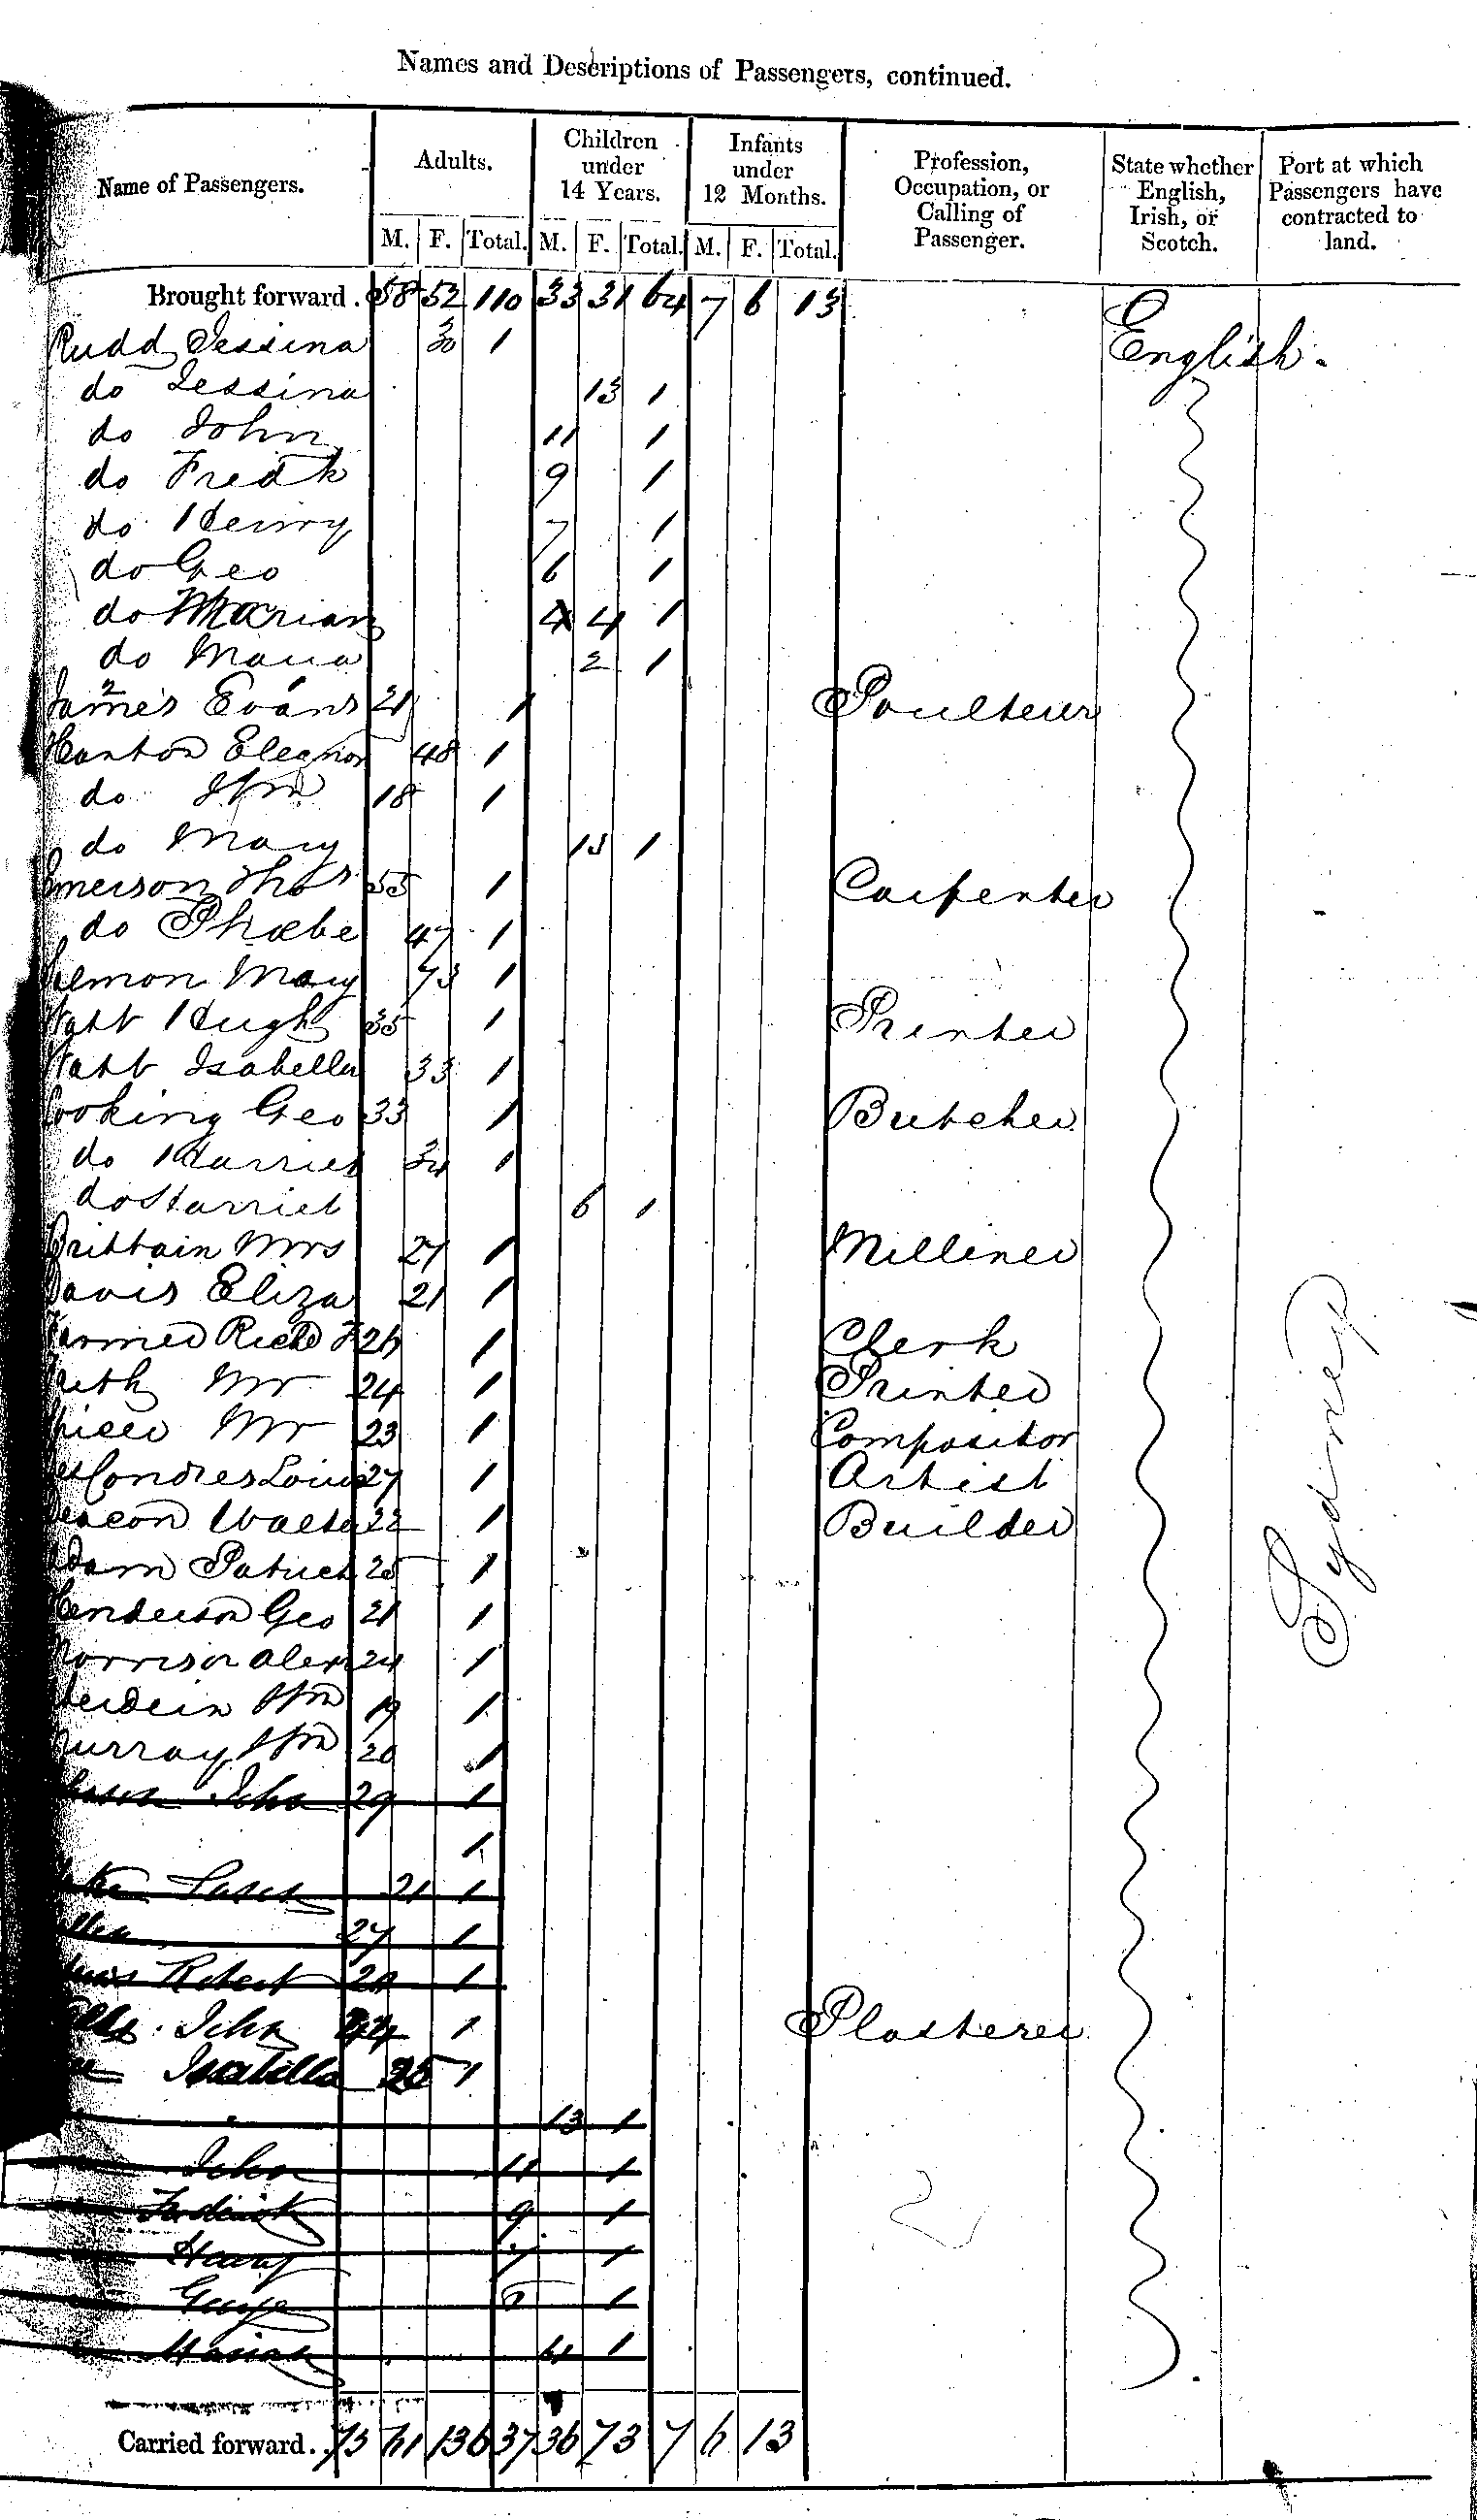 Names and Descriptions of Passengers, continued.
Name of Passengers. Adults. Children under 14 Years. Infants under 12 Months. Profession, Occupation, or Calling of Passenger. State whether English, Irish, or Scotch. Port at which Passengers have contracted to land.
M. F. Total. M. F. Total. M. F. Total.
Brought forward. 58 52 110 33 31 64 7 6 13
Rudd Jessina 30 1 English.
do Jessina 13 1
do John 11 1
do Fredk 9 1
do Henry 7 1
do Geo 6 1
do Marian 4 4 1
do Maria 2 1
James Evans 21 1 Poulterer
Hanton Eleanor 48 1
do Wm 18 1
do Mary 13 1
Emerson Thos 55 1 Carpenter
do Phœbe 47 1
Lemon Mary 73 1
Watt Hugh 35 1 Printer
Watt Isabella 33 1
Cooking Geo 33 1 Butcher
do Harriet 34 1
do Harriet 6 1
Brittain Mrs 27 1 Milliner
Davis Eliza 21 1
Farmer Richd F 26 1 Clerk
Mr 24 1 Printer
Spicer Mr 23 1 Compositor
Des Condres Louis 27 1 Artist
Deacon Walter 22 1 Builder
Adam Patrick 25 1
Henderson Geo 21 1
Morrison Alex 24 1
Aberdein Wm 19 1
Murray Wm 20 1
John 29 1
1
21 1
27 1
Robert 20 1
John 24 1 Plasterer
Isabella 25 1
13 1
John 11 1
Frederick 9 1
Henry 7 1
George 5 1
Marian 4 1
Carried forward. 75 61 136 37 36 73 7 6 13
Sydney